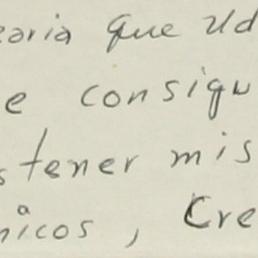 earia que Ud
e consigu
s tener mis
nicos, Cre